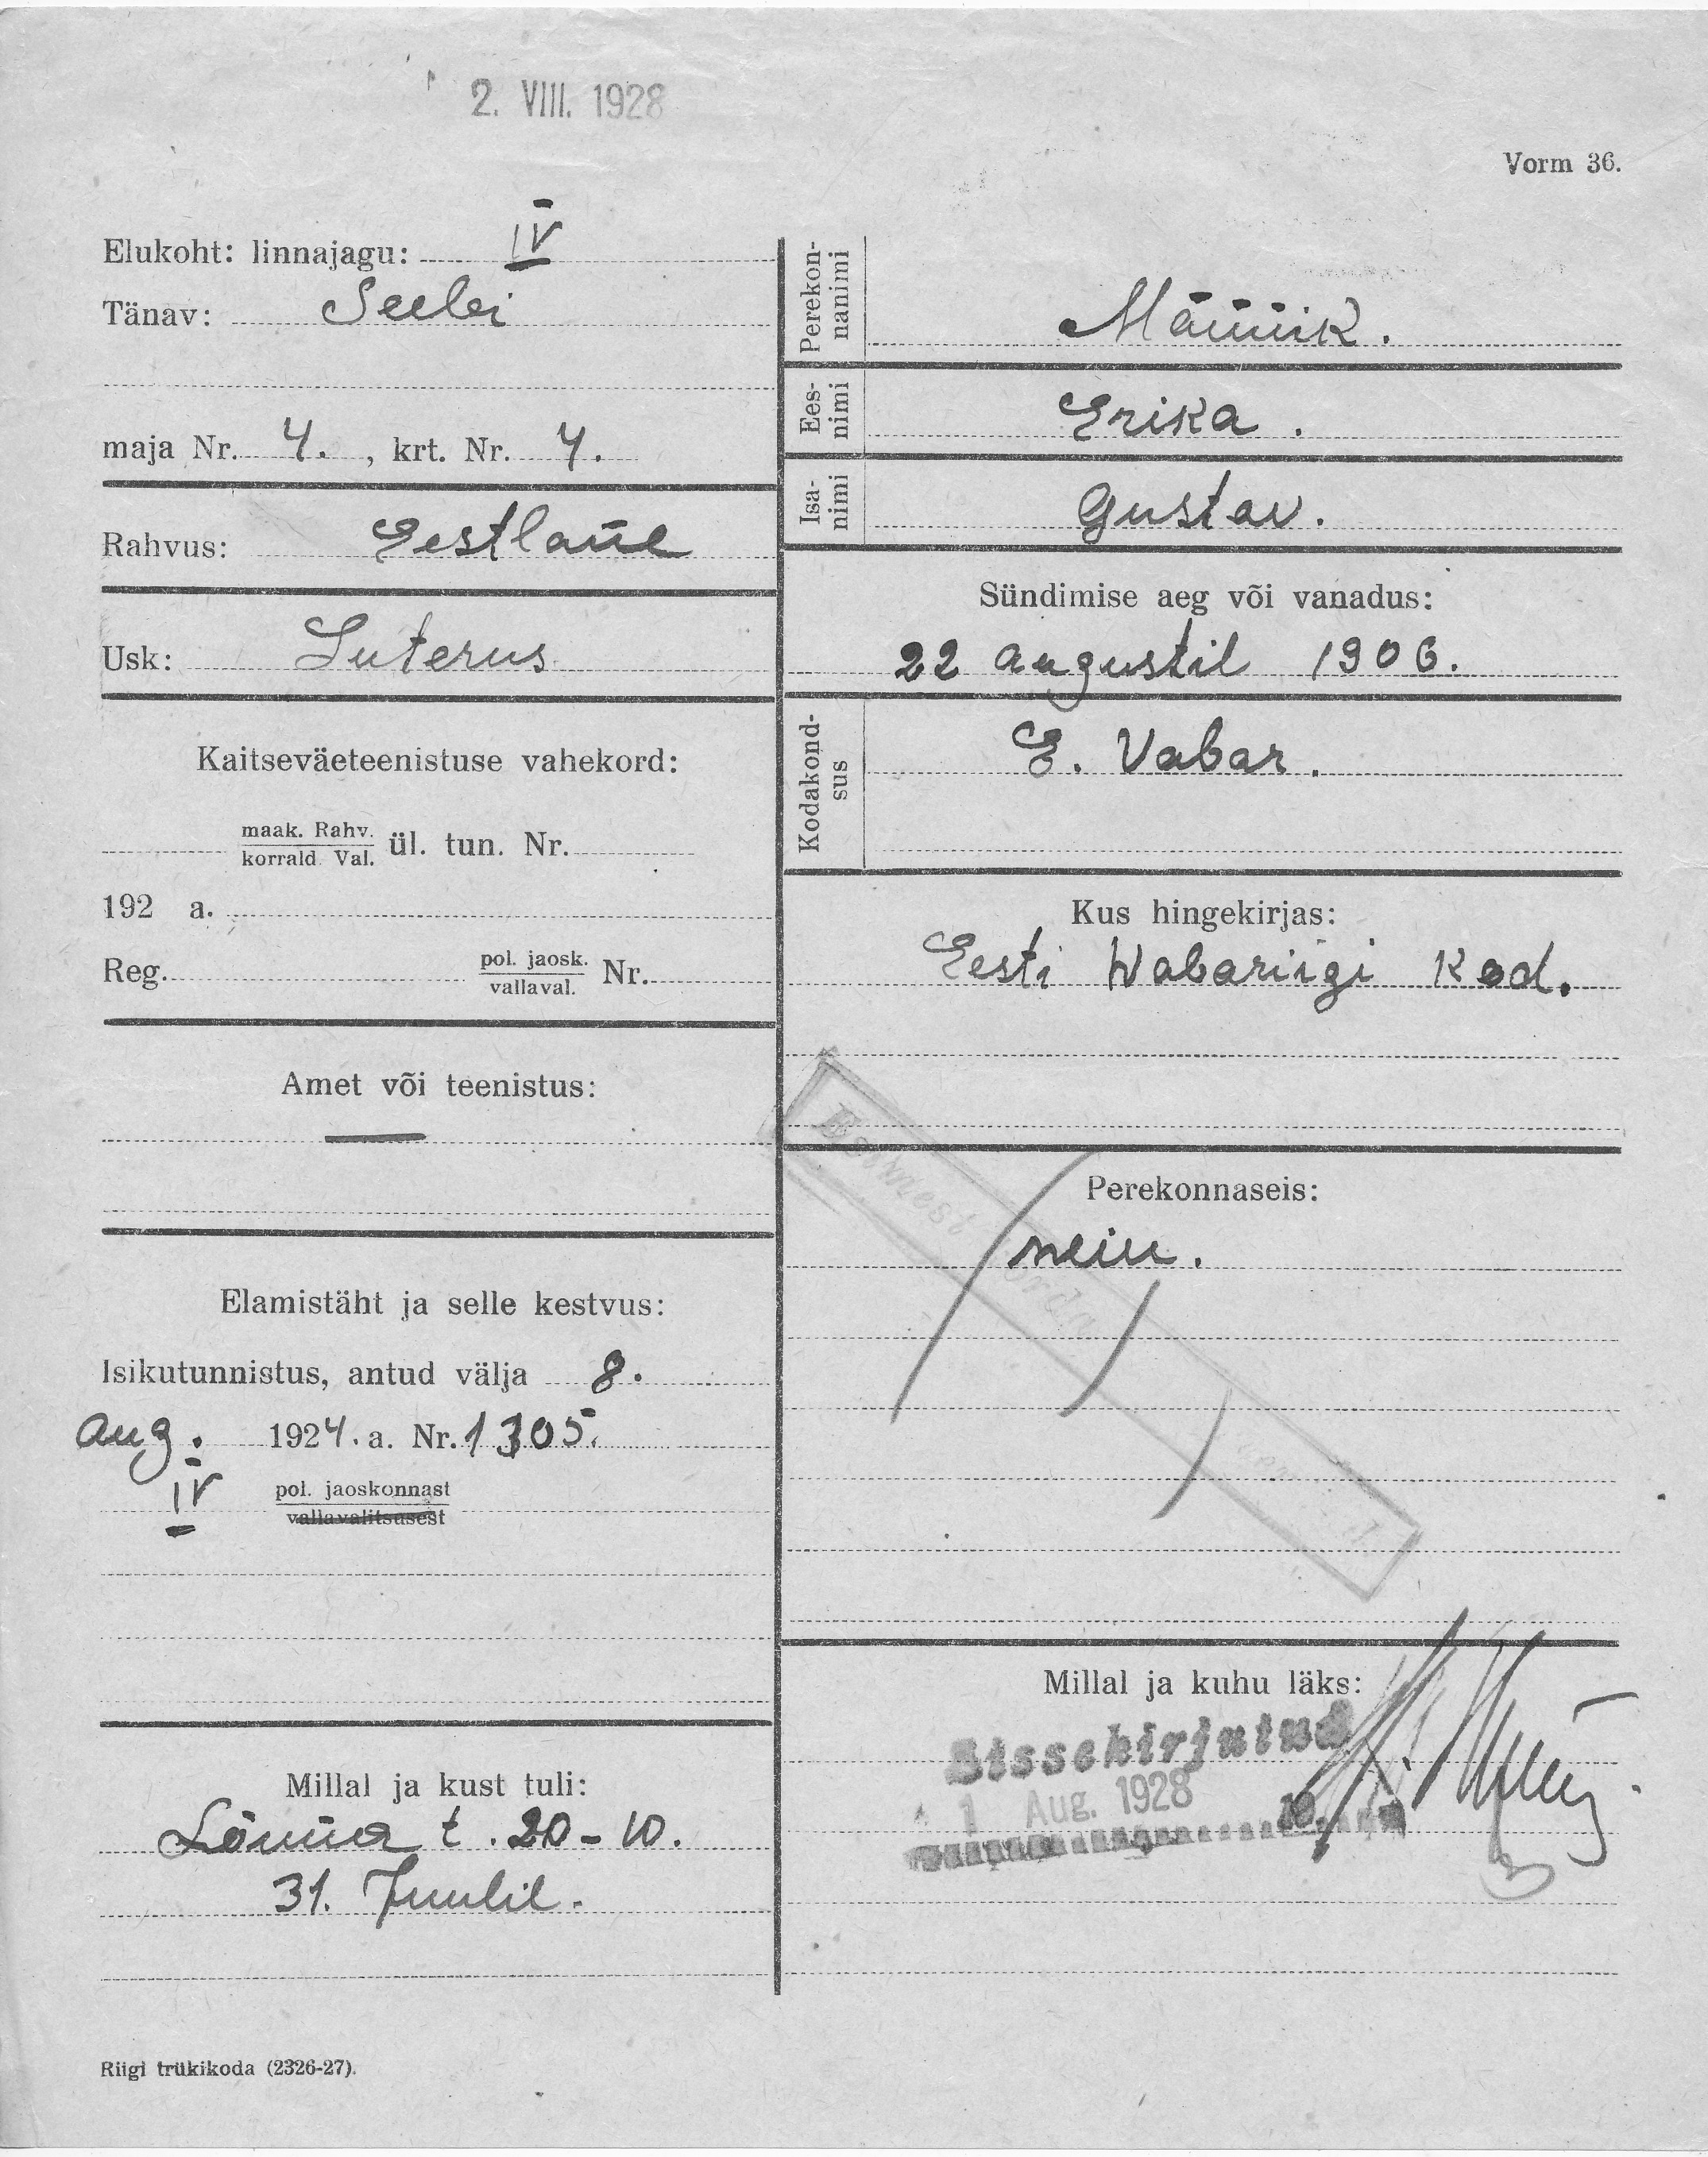 2. VIII. 1928
Vorm 36.
Elukoht: linnajagu: IV
Tänav: Seebi
maja Nr. 4. , krt. Nr. 4.
Rahvus: Eestlane
Usk: Luterus
Kaitseväeteenistuse vahekord:
maak. Rahv.
korrald. Val. ül. tun. Nr.
192 a.
Reg. pol. jaosk. Nr.
vallaval.
Amet või teenistus:
—
Elamistäht ja selle kestvus:
Isikutunnistus, antud välja 8.
aug. 1924. a. Nr. 1305.
IV pol. jaoskonnast
vallavalitsusest
Millal ja kust tuli:
Lõuna t. 20-10.
31. Juulil.
Riigi trükikoda (2326-27).
Perekon-
nanimi Männik.
Ees-
nimi Erika.
Isa-
nimi Gustav.
Sündimise aeg või vanadus:
22 augustil 1906.
Kodakond-
sus E. Vabar.
Kus hingekirjas:
Eesti Wabariigi Kod.
Perekonnaseis:
neiu.
Millal ja kuhu läks:
Sissekirjutud
1 Aug. 1928